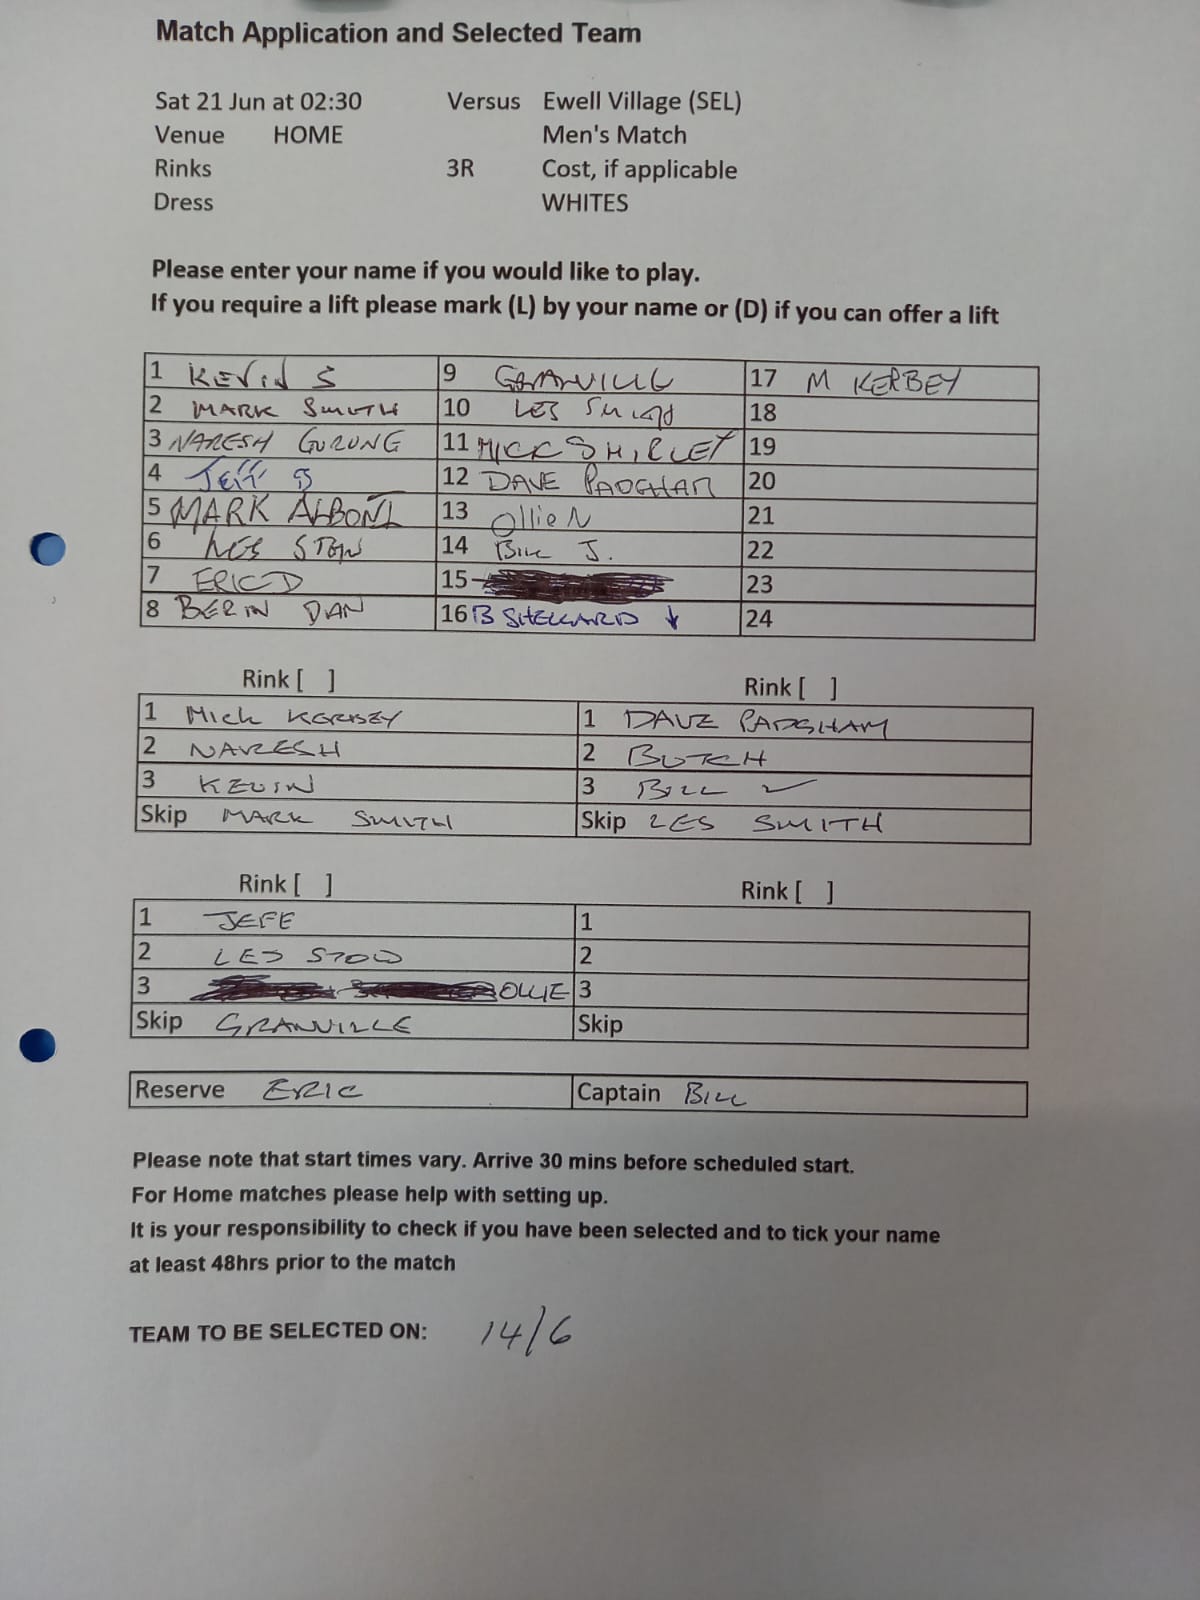 Match Application and Selected Team
Sat 21 Jun at 02:30 Versus Ewell Village (SEL)
Venue HOME Men's Match
Rinks 3R Cost, if applicable
Dress WHITES
Please enter your name if you would like to play.
If you require a lift please mark (L) by your name or (D) if you can offer a lift
1 KEVIN S 9 GRANVILLE 17 M KERBEY
2 MARK SMITH 10 LES SMITH 18
3 NARESH GURUNG 11 MICK SHIRLEY 19
4 Jeff B 12 DAVE PADGHAM 20
5 MARK ALBONI 13 Ollie N 21
6 LES STOW 14 Bill J. 22
7 ERIC D 15 23
8 BERIN DAN 16 B SHELLARD ↓ 24
Rink [ ] Rink [ ]
1 Mick KERBEY 1 DAVE PADGHAM
2 NARESH 2 BUTCH
3 KEVIN 3 BILL ✓
Skip MARK SMITH Skip LES SMITH
Rink [ ] Rink [ ]
1 JEFF 1
2 LES STOW 2
3 OLLIE 3
Skip GRANVILLE Skip
Reserve ERIC Captain BILL
Please note that start times vary. Arrive 30 mins before scheduled start.
For Home matches please help with setting up.
It is your responsibility to check if you have been selected and to tick your name
at least 48hrs prior to the match
TEAM TO BE SELECTED ON: 14/6